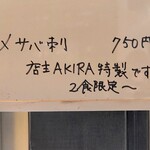 〆サバ刺 750円
店主AKIRA特製です
2食限定～